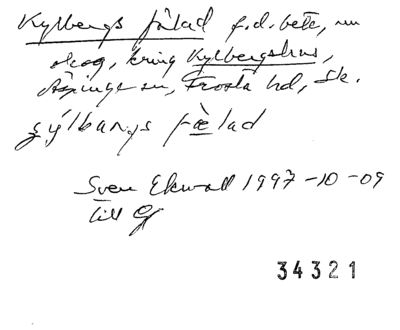 Kylbergs fälad f.d. bete, nu
skog, kring Kylbergshus,
Äspinge sn, Frosta hd, Sk.
çýlbarys fælad
Sven Ekwall 1997-10-09
till
34321